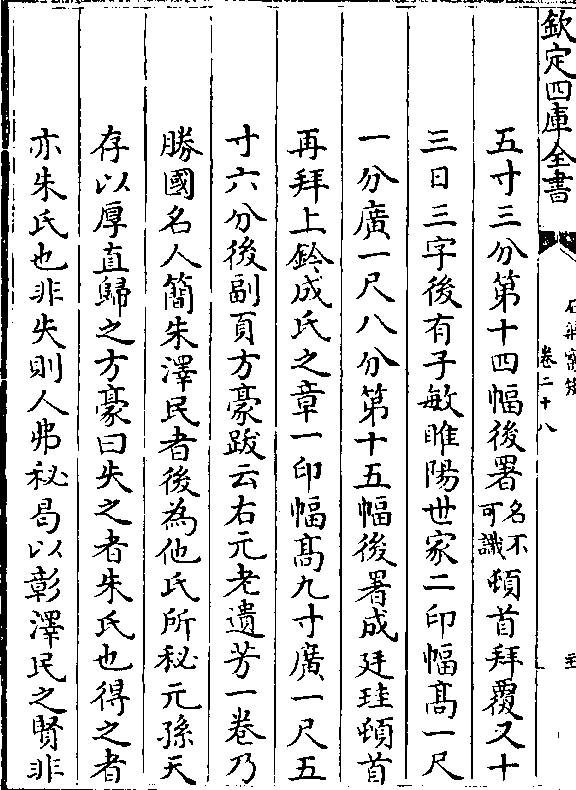 欽定四庫全書
卷二十八
五寸三分第十四幅後署名不可識頓首拜覆又十
三日三字後有子敏睢陽世家二印幅高一尺
一分廣一尺八分第十五幅後署成廷珪頓首
再拜上鈐成氏之章一印幅高九寸廣一尺五
寸六分後副頁方豪跋云右元老遺芳一卷乃
勝國名人簡朱澤民者後為他氏所秘元孫天
存以厚直歸之方豪曰失之者朱氏也得之者
亦朱氏也非失則人弗秘曷以彰澤民之賢非